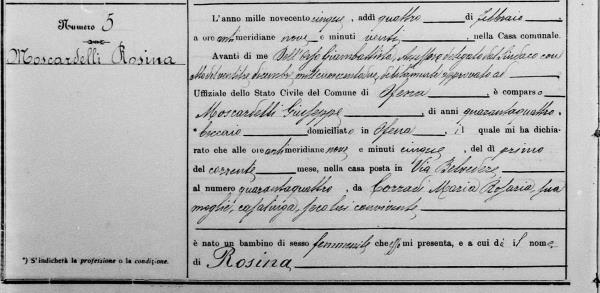 Numero 5
Moscardelli Rosina
*) S'indicherà la professione o la condizione.
L'anno millenovecentocinque, addì quattro di Febbraio,
a ore antimeridiane nove e minuti venti, nella Casa comunale.
Avanti di me Dell'Orfo Giambattista, Assessore delegato dal Sindaco con
approvato
Uffiziale dello Stato Civile del Comune di Ofena, è comparso
Moscardelli Giuseppe, di anni quarantaquattro,
beccaio domiciliato in Ofena, il quale mi ha dichia-
rato che alle ore antimeridiane nove e minuti cinque, del dì primo
del corrente mese, nella casa posta in Via Belvedere,
al numero quarantaquattro, da Corradi Maria Rosaria, sua
moglie, casalinga, seco lui convivente,
è nato un bambino di sesso femminile che mi presenta, e a cui dà il nome
di Rosina